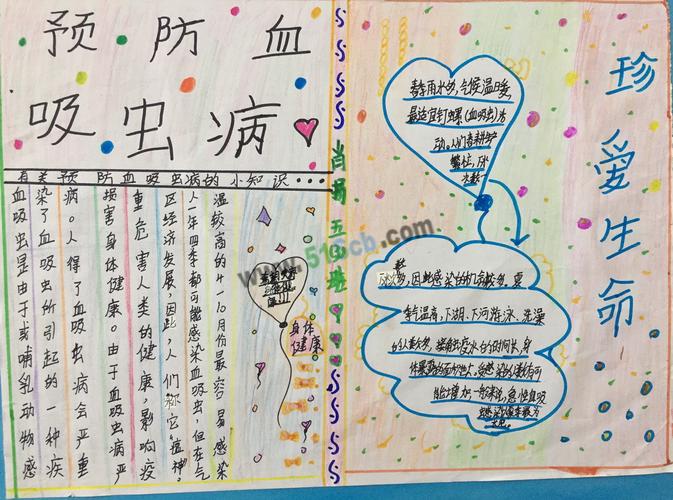 预防血
吸虫病
有关预防血吸虫病的小知识...
血吸虫是由于或哺乳动物感
染了血吸虫所引起的一种疾
病。人得了血吸虫病会严重
损害身体健康。由于血吸虫病严
重危害人类的健康,影响疫
区经济发展,因此,人们称它"瘟神"。
人一年四季都可能感染血吸虫,但在气
温较高的4-10月份最容易感染
身体
健康。
春季雨水多,气候温暖,
最适宜钉螺(血吸虫)活
动。人们春耕
繁忙,
因此感染的机会较多。夏
季气温高,下湖、下河游泳、洗澡
的人数多,接触疫水的时间长,身
体暴露的面积大,感染的人数有可
能增加,一般来说,急性血吸
虫感染
珍爱生命